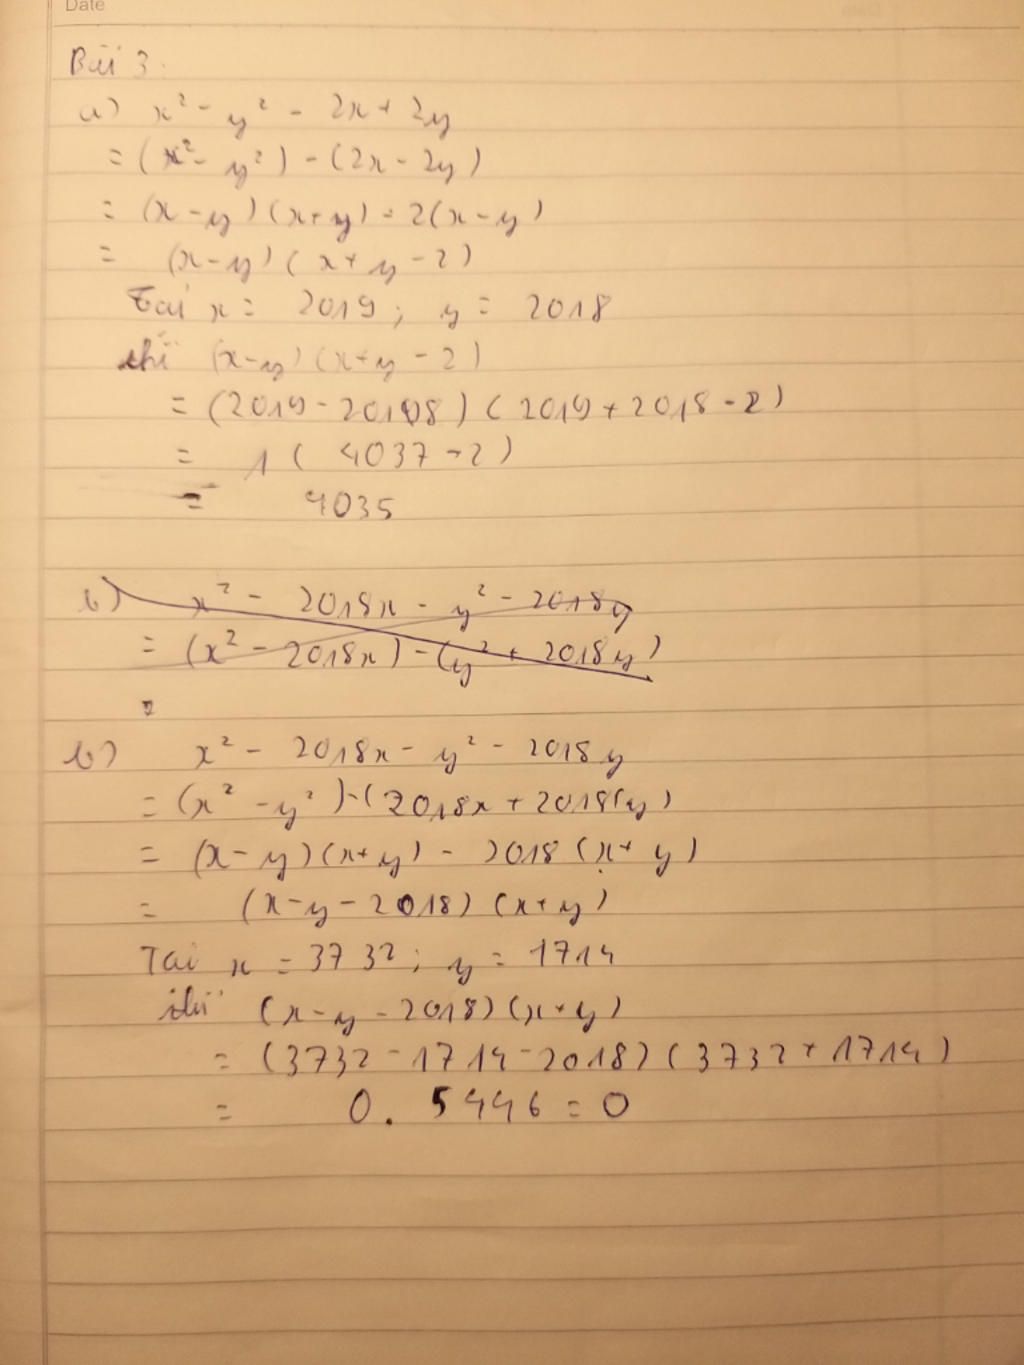 Date
Bài 3.
a) x² - y² - 2x + 2y
= (x² - y²) - (2x - 2y)
= (x - y)(x + y) - 2(x - y)
= (x - y)(x + y - 2)
Tại x = 2019; y = 2018
thì (x - y)(x + y - 2)
= (2019 - 2018)(2019 + 2018 - 2)
= 1(4037 - 2)
= 4035
b) x² - 2018x - y² - 2018y
= (x² - 2018x) - (y² + 2018y)
=
b) x² - 2018x - y² - 2018y
= (x² - y²) - (2018x + 2018y)
= (x - y)(x + y) - 2018(x + y)
= (x - y - 2018)(x + y)
Tại x = 3732; y = 1714
thì (x - y - 2018)(x + y)
= (3732 - 1714 - 2018)(3732 + 1714)
= 0. 5446 = 0